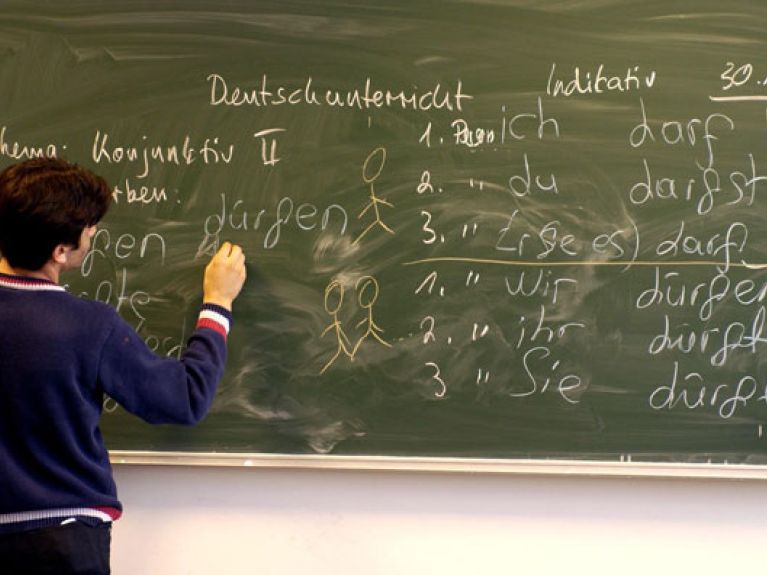 Deutschunterricht
Indikativ 30.
Konjunktiv II
dürfen
1. Person ich darf
2. " du darfst
3. " Er (Sie es) darf
1. " Wir dürfen
2. " ihr dürft
3 " Sie dürfe